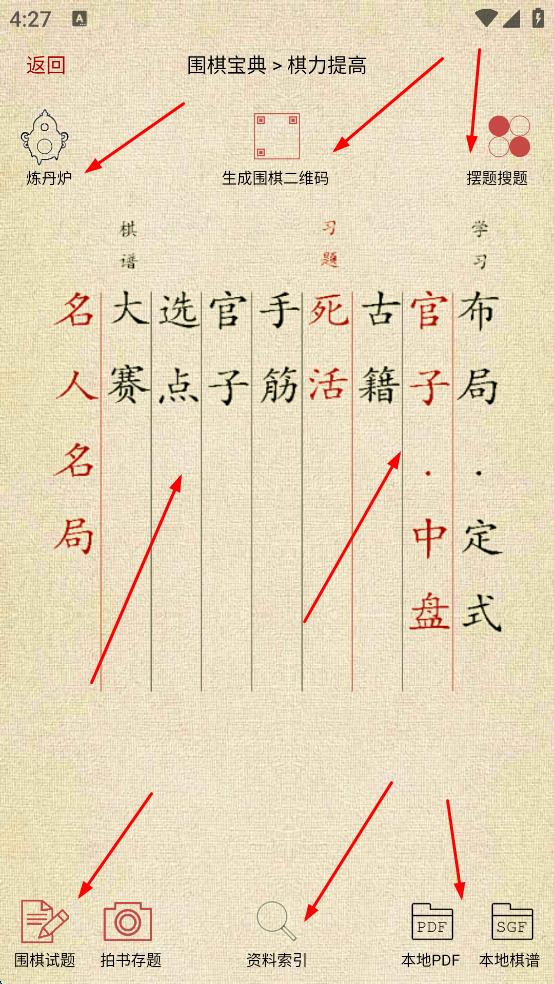 4:27
A
返回
围棋宝典 > 棋力提高
炼丹炉
生成围棋二维码
摆题搜题
学习
习题
棋谱
布局·定式
官子·中盘
古籍
死活
手筋
官子
选点
大赛
名人名局
PDF
SGF
围棋试题
拍书存题
资料索引
本地PDF
本地棋谱